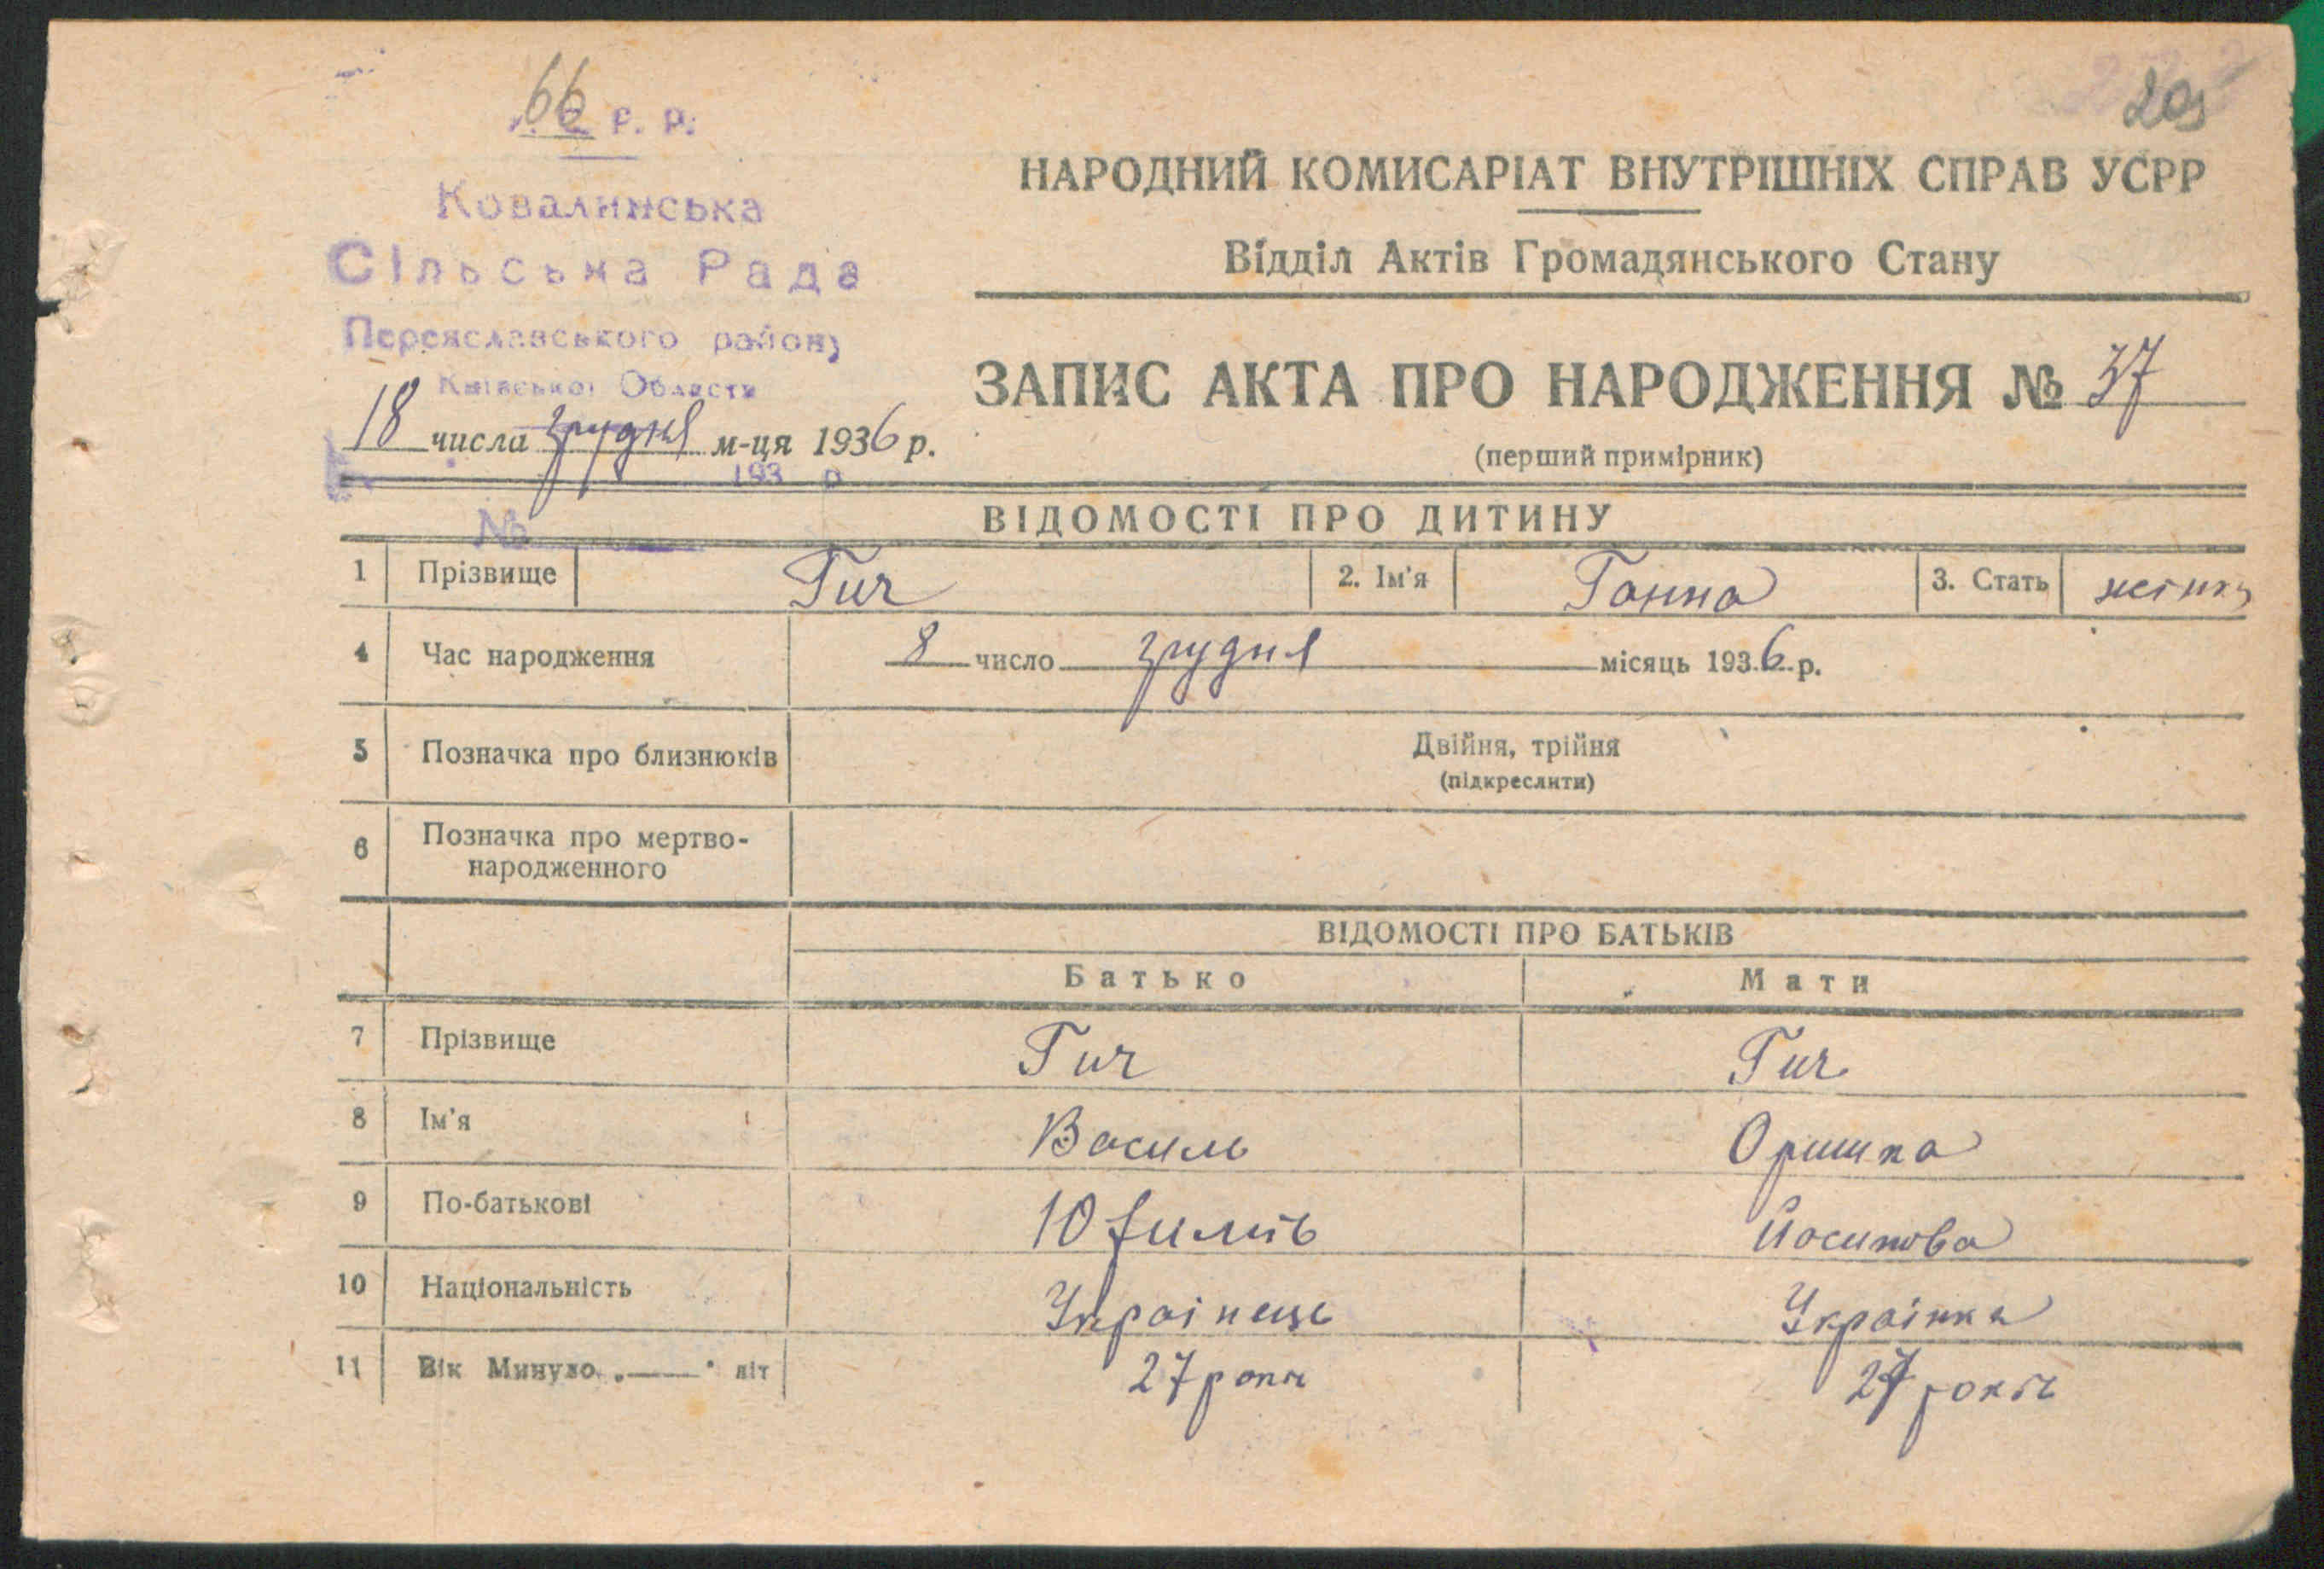 66
У. С. Р. Р.
209
Ковалинська
Сільська Рада
Переяславського району
Київської Области
18 числа грудня м-ця 1936 р.
193 р
№
НАРОДНИЙ КОМИСАРІАТ ВНУТРІШНІХ СПРАВ УСРР
Відділ Актів Громадянського Стану
ЗАПИС АКТА ПРО НАРОДЖЕННЯ № 37
(перший примірник)
ВІДОМОСТІ ПРО ДИТИНУ
1 Прізвище Гич 2. Ім'я Ганна 3. Стать
4 Час народження 8 число грудня місяць 1936 р.
5 Позначка про близнюків Двійня, трійня
(підкреслити)
6 Позначка про мертво-
народженного
ВІДОМОСТІ ПРО БАТЬКІВ
Батько Мати
7 Прізвище Гич Гич
8 Ім'я Василь Оришка
9 По-батькові Юхимів Йосипова
10 Національність Українець Українка
11 Вік Минуло „—“ літ 27 років 27 років